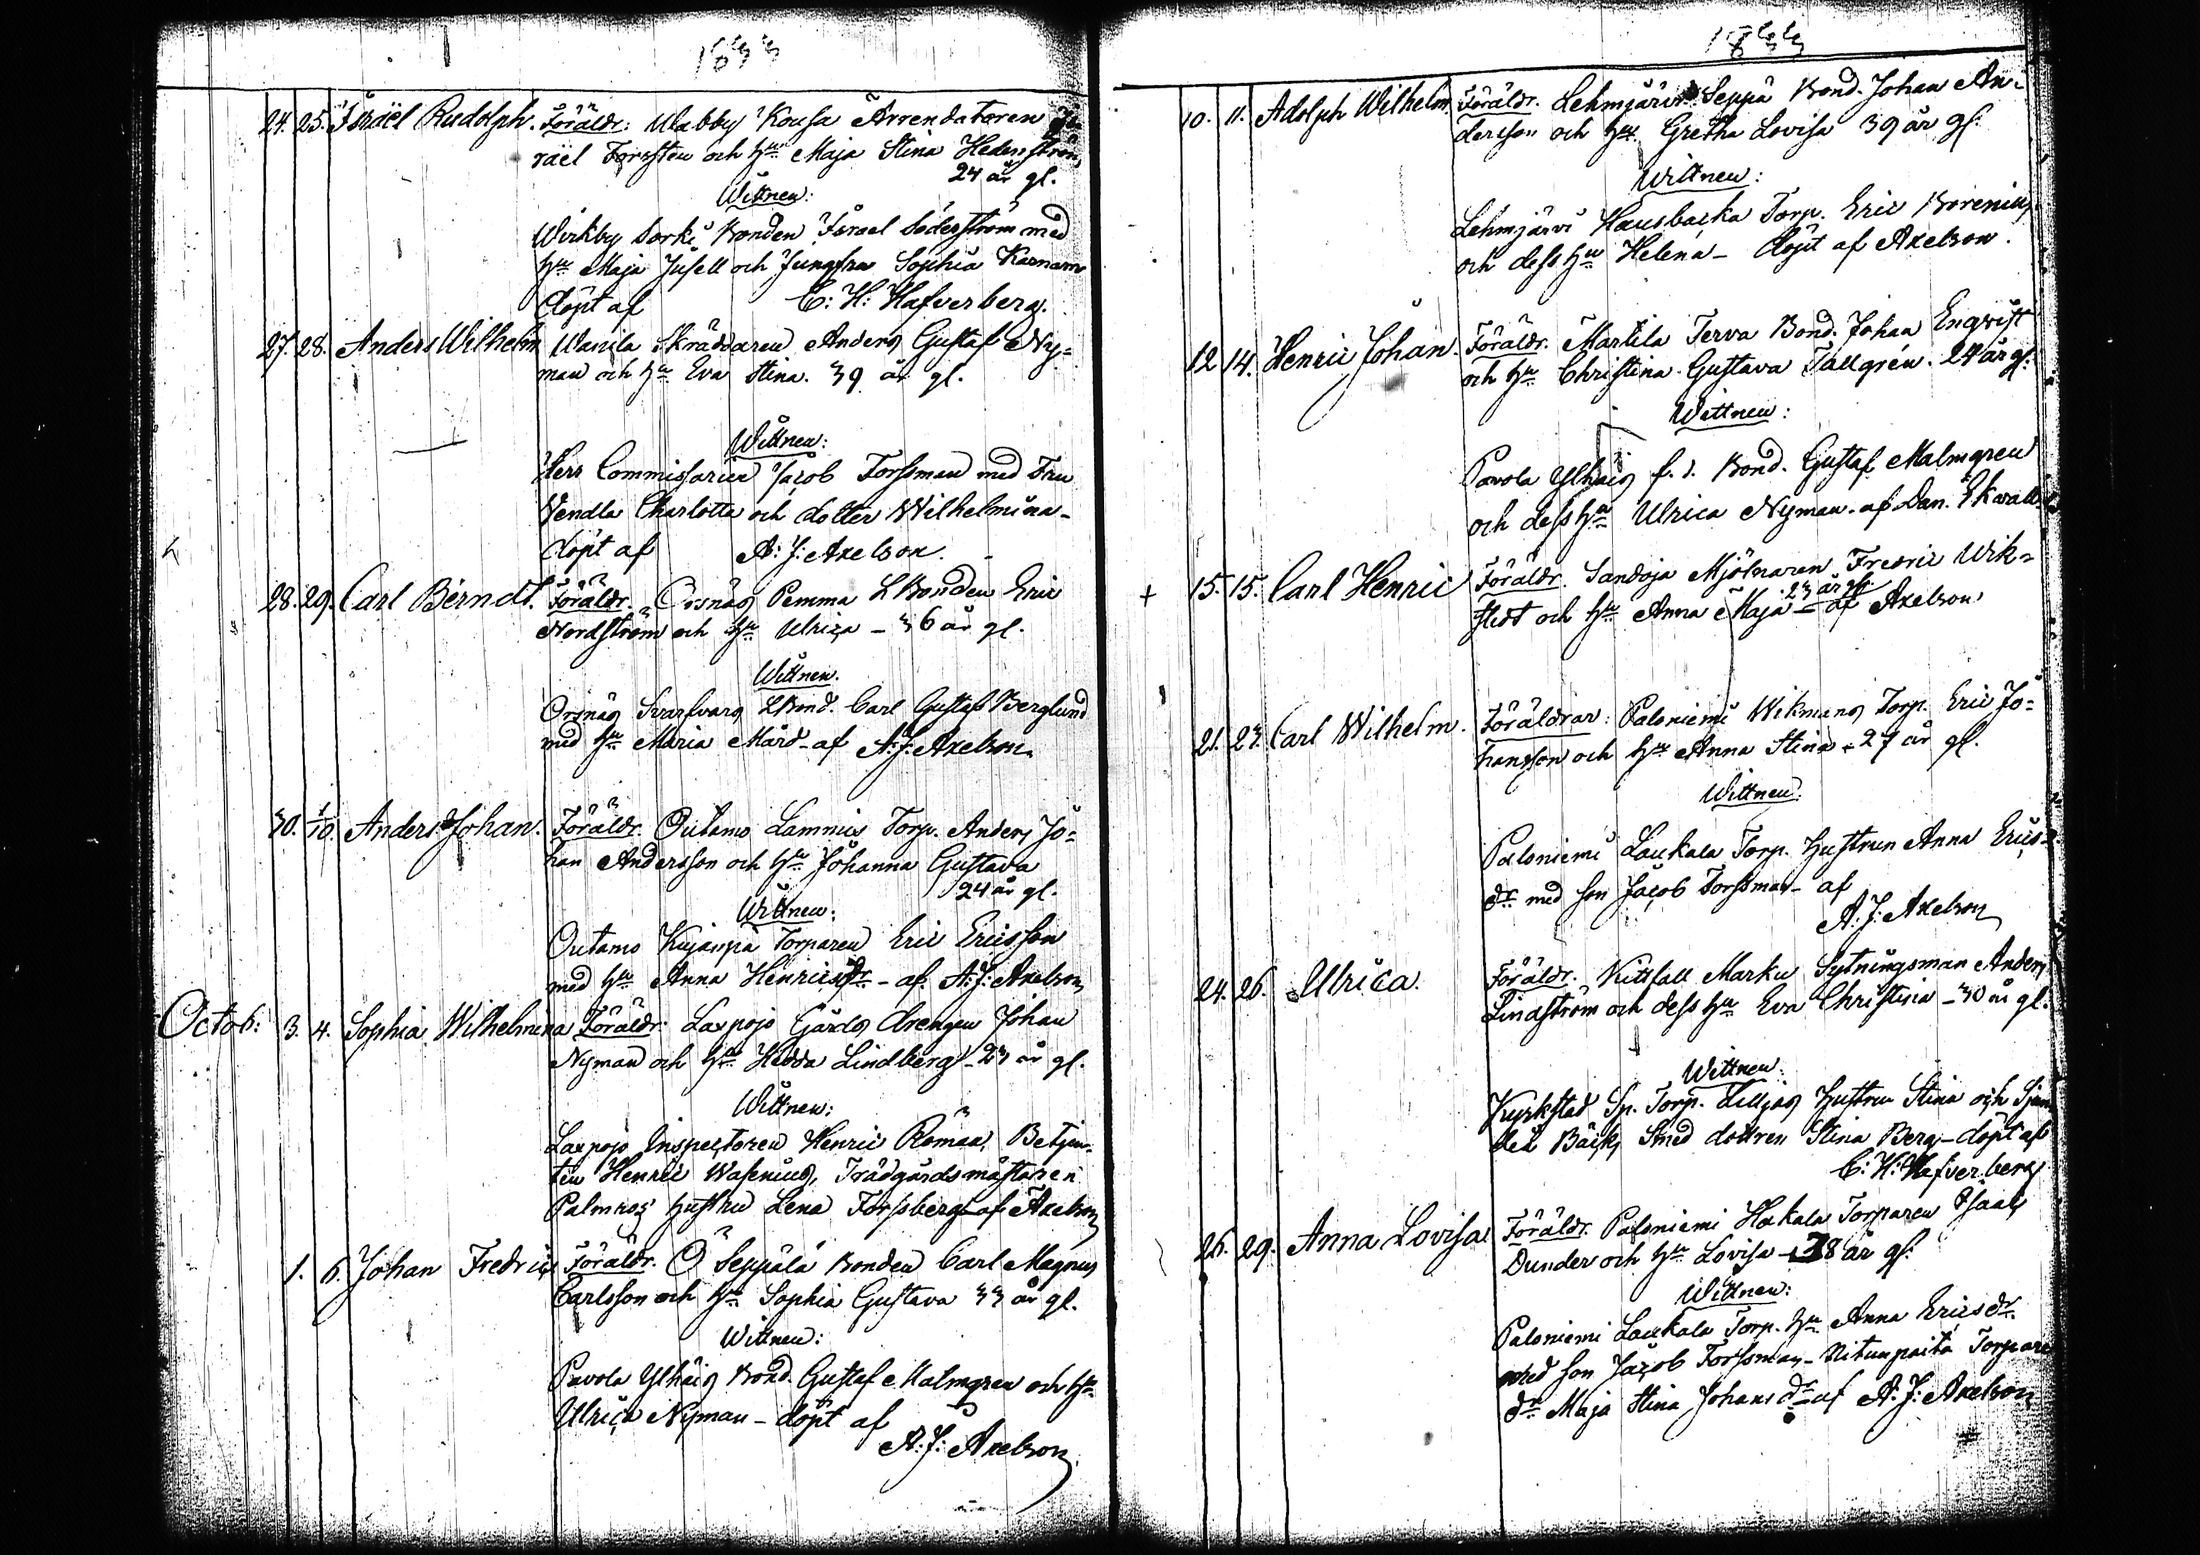 1833
24. 25. Israël Rudolph. Föräldr: Wabby Kousa Arrendatoren Is
raël Forssten och hu Maja Stina Hedersström
24 år gl.
Wittnen:
Wirkby Sorki Bonden Israel Söderström med
hu Maja Jusell och Jungfru Sophia
döpt af C: H: Hafverberg.
27. 28. Anders Wilhelm Wanila Skräddaren Anders Gustaf Ny=
man och hu Eva Stina. 39 år gl.
Wittnen:
Herr Commissarien Jacob Forssman med Fru
Vendla Charlotta och dotter Wilhelmina-
döpt af A: J: Axelson.
28. 29. Carl Berndt. Föräldr. Orsnäs Pemma L Bonden Eric
Nordström och hu Ulrica - 36 år gl.
Wittnen.
Orsnäs Svarfvars LBond. Carl Gustaf Berglund
med hu Maria Mård - af A: J: Axelson.
30. 1/10. Anders Johan. Föräldr. Outamo Lammis Torp. Anders Jo=
han Andersson och hu Johanna Gustava
24 år gl.
Wittnen:
Outamo Kujanpä Torparen Eric Ericsson
med hu Anna Henricsdr - af A: J: Axelson
Octob: 3. 4. Sophia Wilhelmina Föräldr: Laxpojo Gårds drengen Johan
Nyman och hu Hedda Lindberg - 23 år gl.
Wittnen:
Laxpojo Inspectoren Henric Roman, Betjen-
ten Henric Wasenius, Trädgårdsmästaren
Palmros hustru Lena Forssberg - af Axelson
1. 6. Johan Fredric Föräldr. Ö Seppälä Bonden Carl Magnus
Carlsson och hu Sophia Gustava 33 år gl.
Wittnen:
Pavola Ylhäis Bond. Gustaf Malmgren och hu
Ulrica Nyman - döpt af
A: J: Axelson
1833
10. 11. Adolph Wilhelm. Föräldr. Lehmjärvi Seppä Bond. Johan An-
dersson och hu Gretha Lovisa 39 år gl.
Wittnen:
Lehmjärvi Hausbacka Torp. Eric Borenius
och dess hu Helena - döpt af Axelson.
12 14. Henric Johan. Föräldr. Martila Terva Bond. Johan Enqvist
och hu Christina Gustava Tallgrén. 24 år gl.
Wittnen:
Pavola Ylhäis f. d. Bond. Gustaf Malmgren
och dess hu Ulrica Nyman. af Dan. Ekvall
+ 15. 15. Carl Henric Föräldr. Sandoja Mjölnaren Fredric Wik=
stedt och hu Anna Maja 23 år gl. - af Axelson
21. 23. Carl Wilhelm. Föräldrar: Paloniemi Wikmans Torp. Eric Jo=
hansson och hu Anna Stina - 27 år gl.
Wittnen:
Paloniemi Laukala Torp. Hustrun Anna Erics-
dr med son Jacob Forssman - af
A: J: Axelson
24. 26. Ulrica. Föräldr. Kittfall Marku Sytningsman Anders
Lindström och dess hu Eva Christina - 30 år gl.
Wittnen:
Kyrkstad Sp. Torp. Liljas Hustru Stina och
Bäck, Smed dottren Stina Berg - döpt af
C: H: Hafverberg
26. 29. Anna Lovisa Föräldr. Paloniemi Hakala Torparen Isaac
Dunder och hu Lovisa - 38 år gl.
Wittnen:
Paloniemi Laukala Torp. hu Anna Ericsdr
med son Jacob Forssman - Nitunpaita Torpare
dr Maja Stina Johansdr - af A: J: Axelson